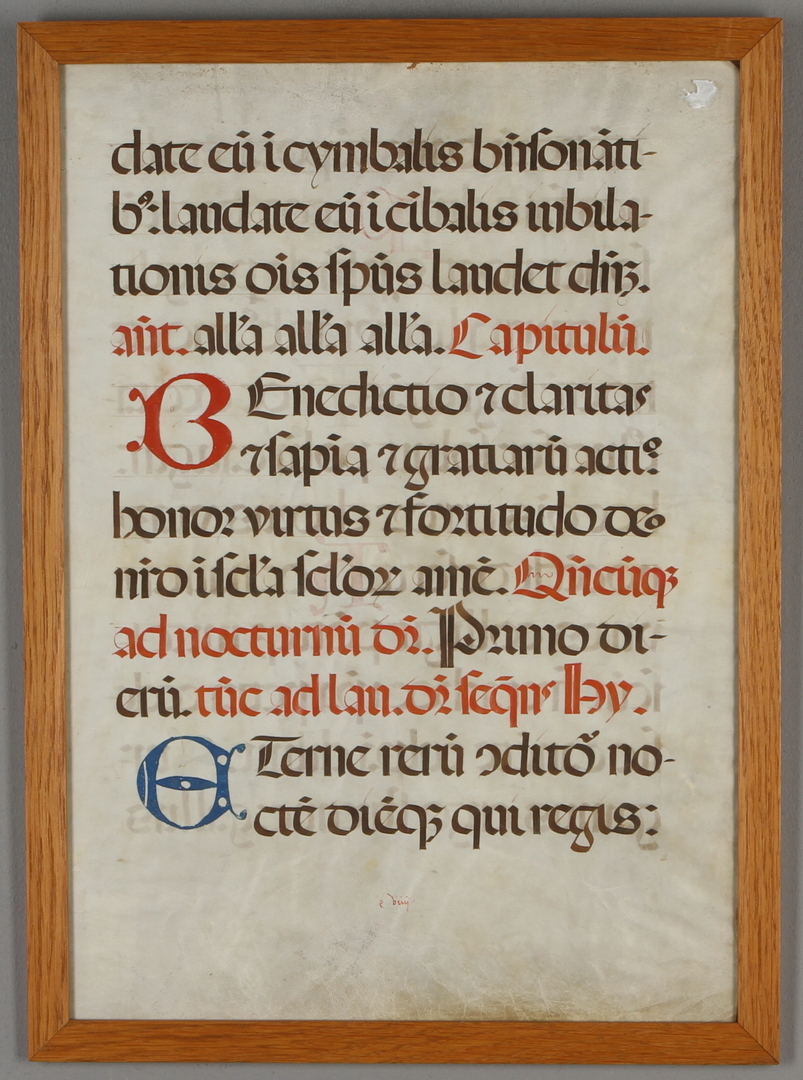 date eū ī cymbalis bn̄ſonāti-
bꝰ: laudate eū ī cībalis iubila-
tionis oīs ſpūs laudet dn̄ꝫ.
an̄t. all'a all'a all'a. Capitulū.
BEnedictio ⁊ claritas
⁊ ſapīa ⁊ gratiarū actiº
honoꝛ virtus ⁊ foꝛtitudo deo
nr̄o ī ſcl'a ſcl'oꝝ amē. Qn̄cūqꝫ
ad nocturnū dr̄. Primo di-
erū. tūc ad lau. dr̄ ſeqn̄s hy.
ETerne rerū ↄditoꝛ̄ no-
ctē diēqꝫ qui regis: